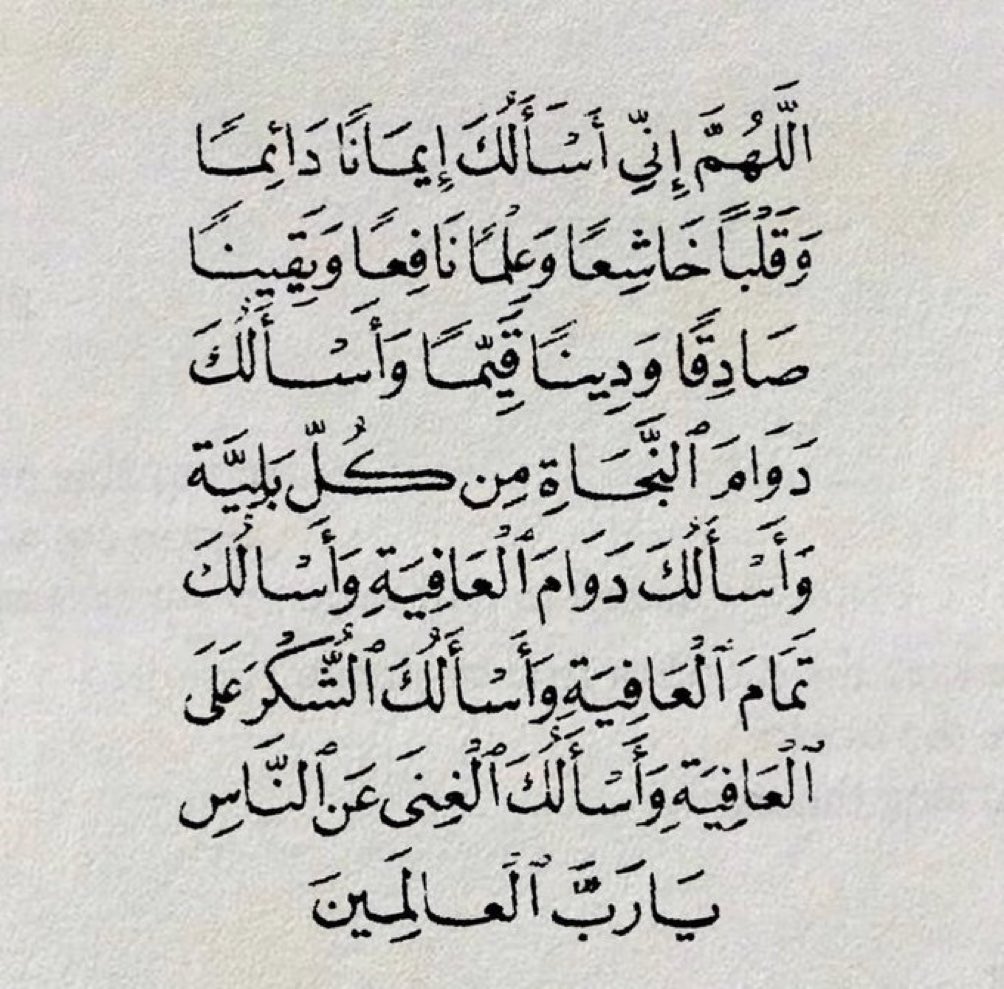 اللَّهُمَّ إِنِّي أَسْأَلُكَ إِيمَانًا دَائِمًا
وَقَلْبًا خَاشِعًا وَعِلْمًا نَافِعًا وَيَقِينًا
صَادِقًا وَدِينًا قَيِّمًا وَأَسْأَلُكَ
دَوَامَ ٱلنَّجَاةِ مِن كُلِّ بَلِيَّة
وَأَسْأَلُكَ دَوَامَ ٱلْعَافِيَةِ وَأَسْالُكَ
تَمَامَ ٱلْعَافِيَةِ وَأَسْأَلُكَ ٱلشُّكْرَ عَلَى
ٱلْعَافِيَةِ وَأَسْأَلُكَ ٱلْغِنَى عَنِ ٱلنَّاسِ
يَا رَبَّ ٱلْعَالَمِينَ